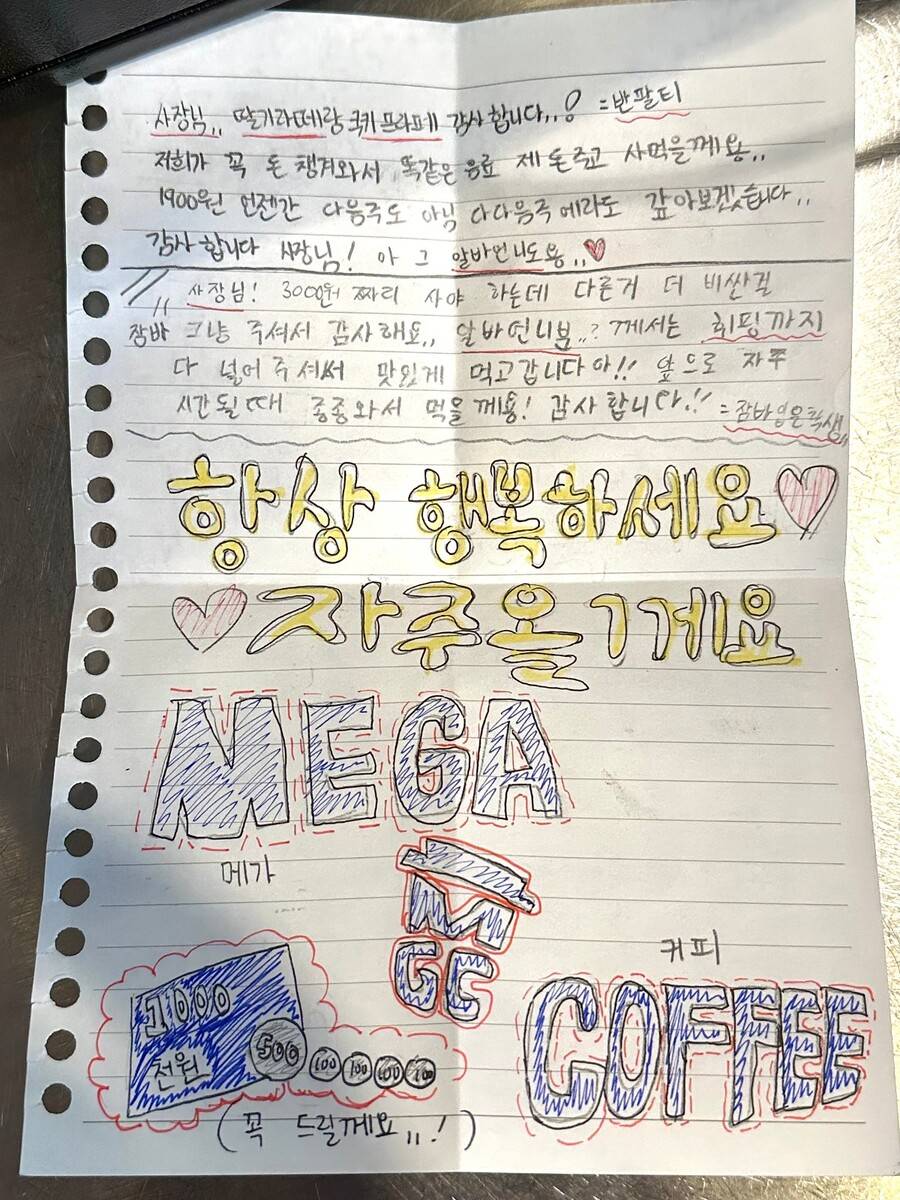 사장님,, 딸기라떼랑 쿠키프라페 감사합니다,,! =반팔티
저희가 꼭 돈 챙겨와서 똑같은 음료 제 돈주고 사먹을께용,,
1900원 언젠간 다음주도 아님 다다음주에라도 갚아보겠습니다,,
감사합니다 사장님! 아 그 알바언니도용,,♥
사장님! 3000원 짜리 사야 하는데 다른거 더 비싼걸
잠바 그냥 주셔서 감사해요,, 알바언니분,,? 께서는 휘핑까지
다 넣어주셔써 맛있게 먹고갑니다아!! 앞으로 자주
시간될때 종종와서 먹을께용! 감사합니다!! =잠바입은학생,,
항상 행복하세요♥
♥자주올게요
MEGA
메가
M
GC
커피
COFFEE
1000
천원
500 100 100 100 100
(꼭 드릴께요,,!)